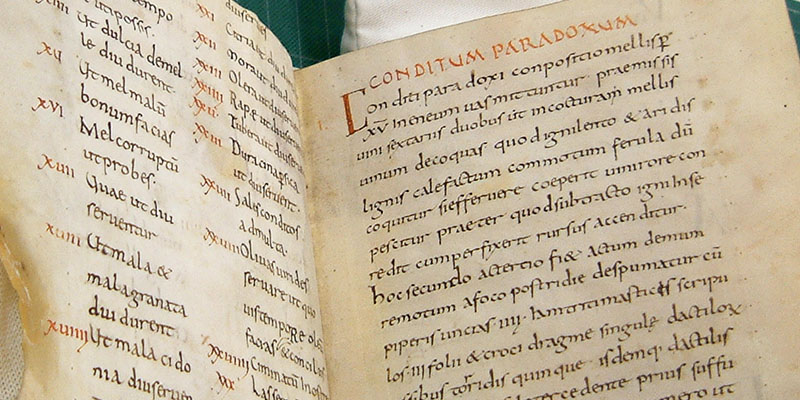 tempo
Ut dulcia demel
le diu durent
XV Ut mel malū
bonum facias
XVI Mel corruptū
ut probes:
XVII Quae ut diu
seruentur
XVIII Ut mala &
malagranata
diu durent
XVIIII Ut mala cido
nia diu seruen
XXI
XXII Mora ut diu
XXIII Olera ut diu
XXIIII Rape ut diu
XXV Tubera ut diu
XXVI Duracina psica
ut diu seruent
XXVII Sales conditos
ad multa.
XXVIII Oliuas uirides
seruare ut quo
uis tempore
facias &
XXVIIII Ciminatū
XXX
CONDITUM PARADOXUM
Conditi paradoxi conpositio mellis p
XV In eneum uas mittuntur praemissis
uini sextariis duobus ut in cocturam mellis
uinum decoquas quod igni lento & aridis
lignis calefactum commotum ferula dū
coquitur si efferuere coeperit uini rore con
pescitur praeter quod subtracto igni in se
redit cum perfixerit rursus accenditur.
hoc secundo ac tertio fi& ac tum demum
remotum a foco postridie despumatur cū
piperis uncias IIII iam triti masticis scripu
los III folii & croci dragme singulę dactilox
ossibus torridis quinque isdemq dactilis
intercedente prius suffu